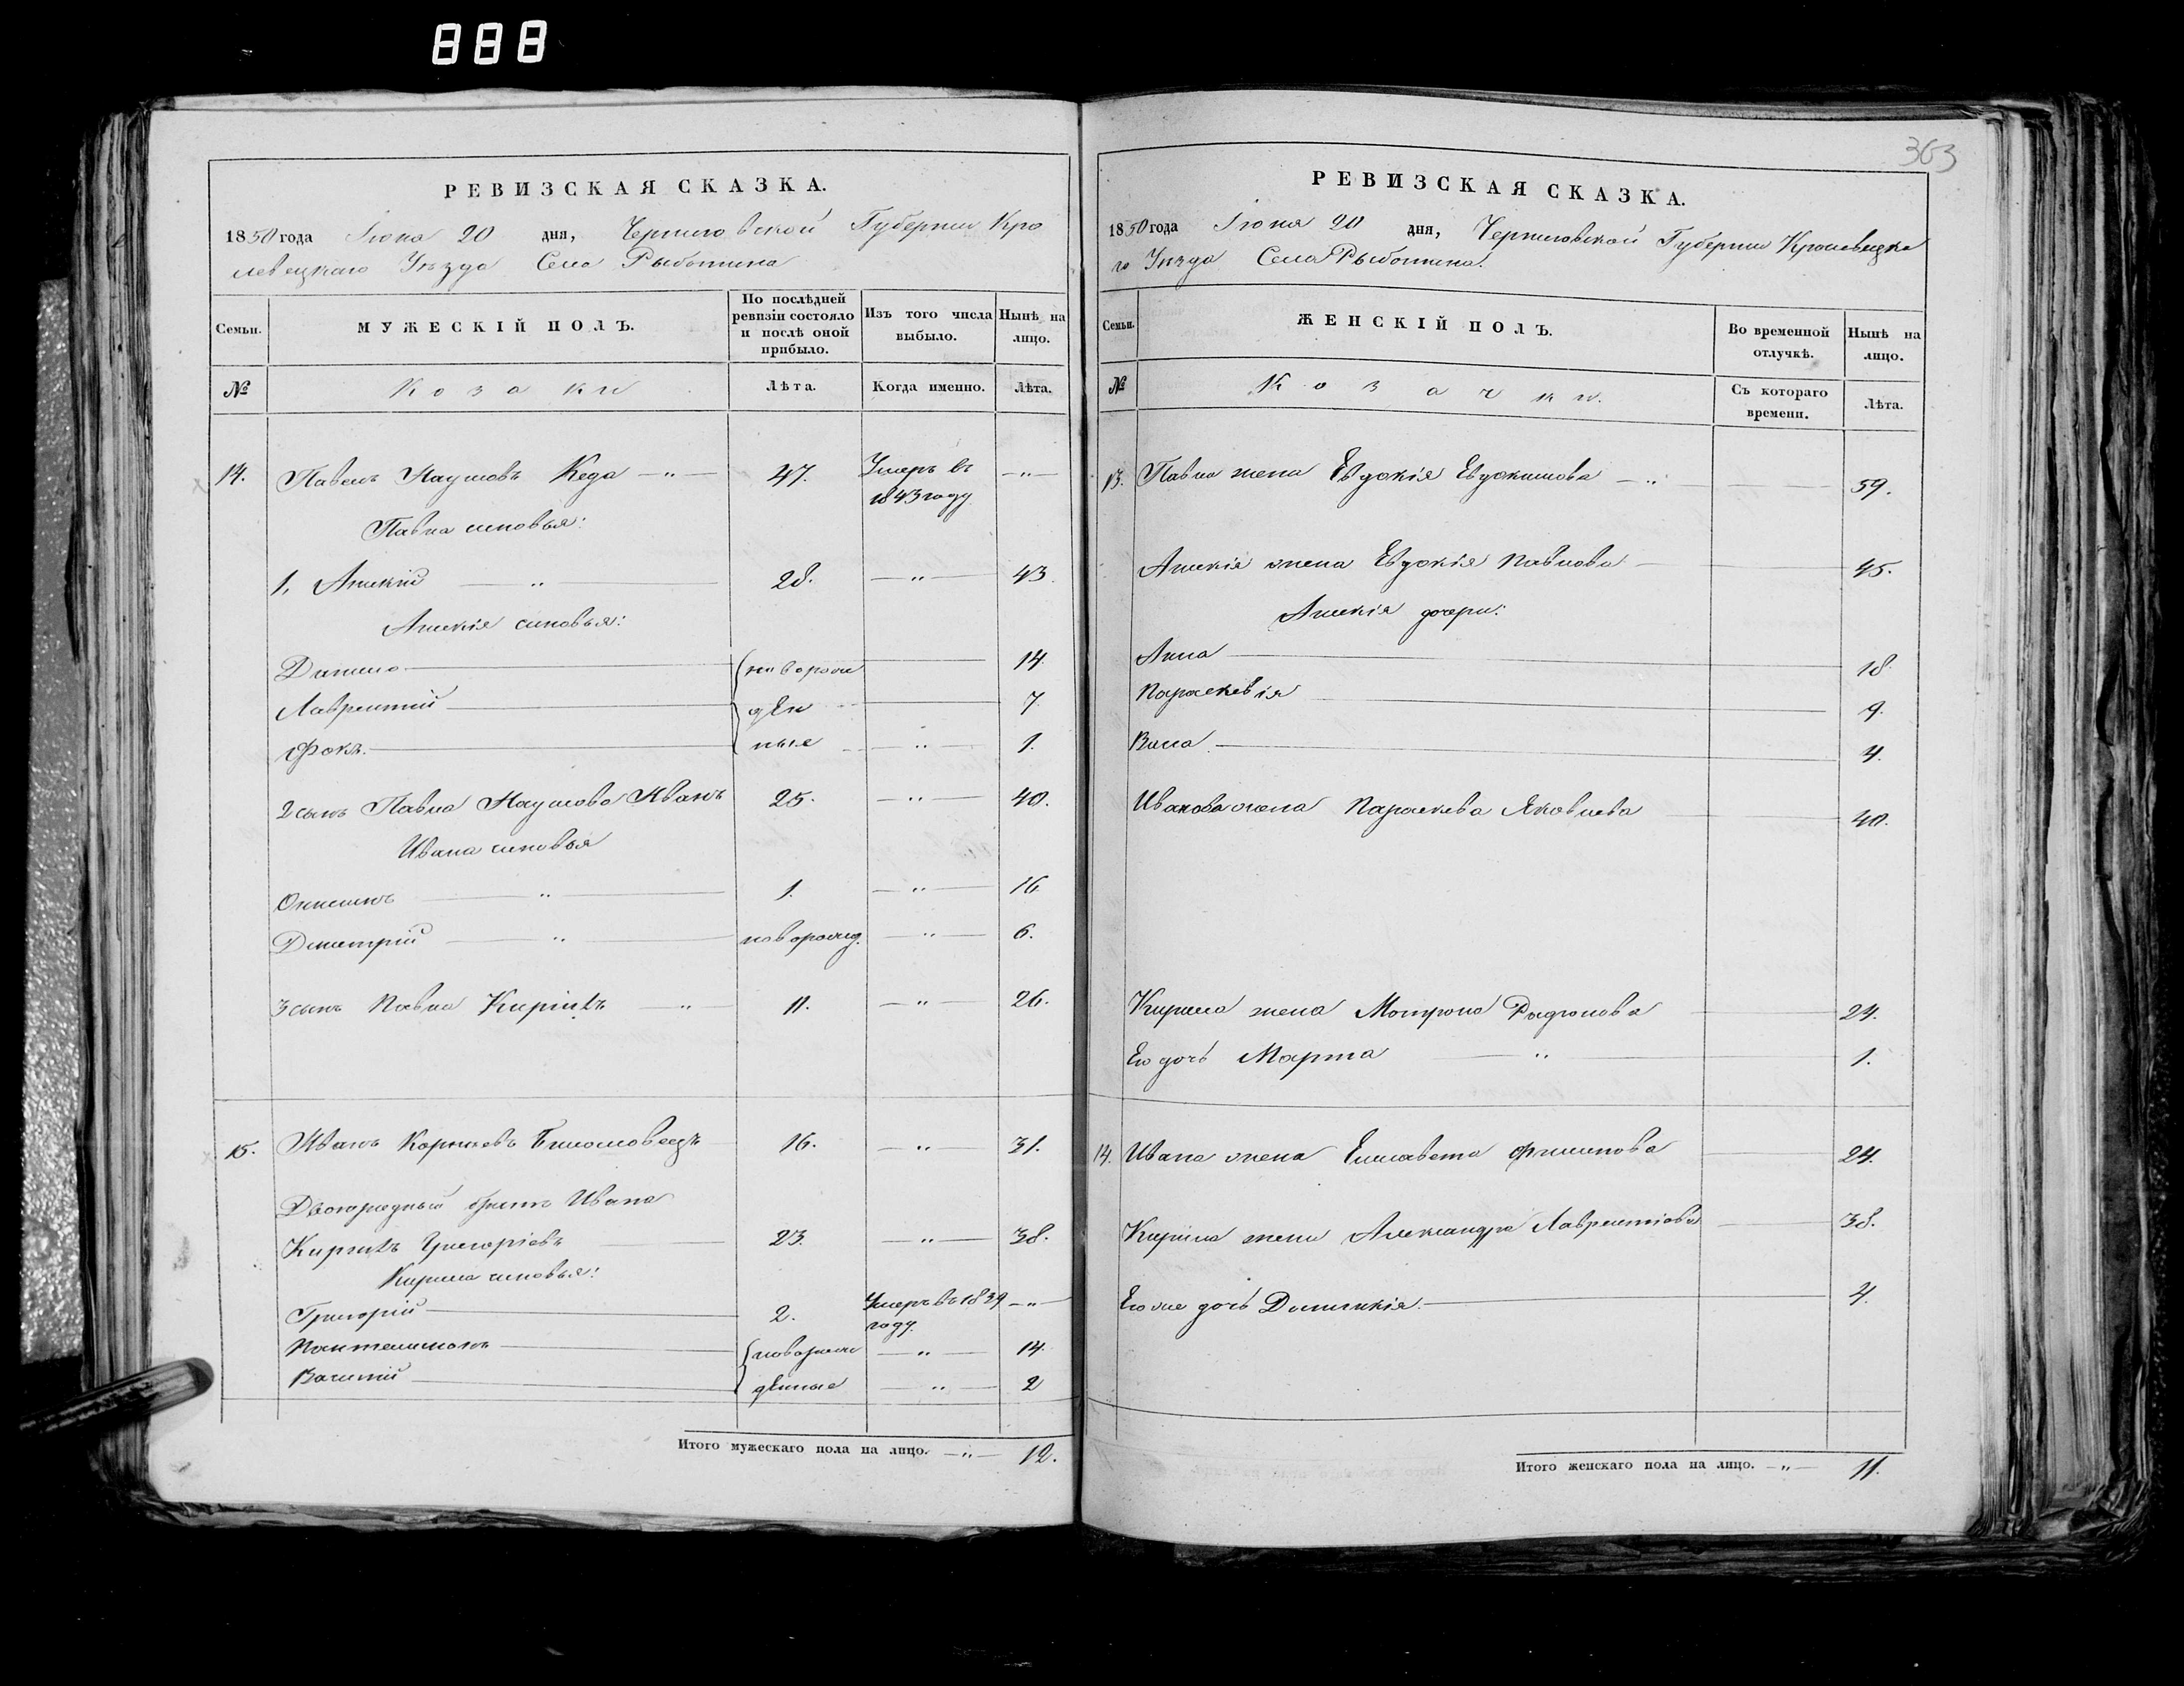 888
РЕВИЗСКАЯ СКАЗКА.
1850 года Іюня 20 дня, Черниговской Губерніи Кро
левецкаго Уѣзда Села Рыботина
Семьи.
МУЖЕСКІЙ ПОЛЪ.
По послѣдней ревизіи состояло и послѣ оной прибыло.
Изъ того числа выбыло.
Нынѣ на лицо.
№ Козаки Лѣта. Когда именно. Лѣта.
14. Павелъ Наумовъ Кеда —"— 47. Умеръ въ —"—
1843 году
Павла сыновья:
1, " 28. —"— 43.
сыновья:
Данило { новорож 14.
Лаврентий дѣн 7.
Фока ные " 1.
2 сынъ Павла Наумова Иванъ 25. —"— 40.
Ивана сыновья
" 1. —"— 16.
Дмитрій " новорожд. —"— 6.
3 сынъ Павла Кирилъ " 11. —"— 26.
15. Иванъ Корнѣевъ 16. —"— 31.
Двоюродный братъ Ивана
Кирилъ Григоріевъ 23. —"— 38.
Кирила сыновья:
Григорій 2. Умеръ въ 1839 —"—
году.
Пантелимонъ { новорож —"— 14.
Василий дѣнные —"— 2
Итого мужескаго пола на лицо. —"— 12.
363
РЕВИЗСКАЯ СКАЗКА.
1850 года Іюня 20 дня, Черниговской Губерніи Кролевецка
го Уѣзда Села Рыботина.
Семьи.
ЖЕНСКІЙ ПОЛЪ.
Во временной отлучкѣ.
Нынѣ на лицо.
№ Козачки. Съ котораго времени. Лѣта.
13. Павла жена Евдокія Евдокимова —" 59.
жена Евдокія Павлова 45.
дочери:
Анна 18.
Параскевія 9.
4.
Иванова жена Параскева Яковлева 40.
Кирила жена Мотрона Радионова 24.
Его дочь Марта " 1.
14. Ивана жена Елисавета Филипова 24.
Кирила жена Александра Лаврентіова 38.
Его же дочь Домникія. 4.
Итого женскаго пола на лицо. —"— 11.